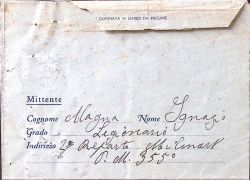 GOMMATA IN LEMBO DA PIEGARE
Mittente
Cognome Magna Nome Ignazio
Grado Legionario
Indirizzo 2° Reparto
P. M. 355°